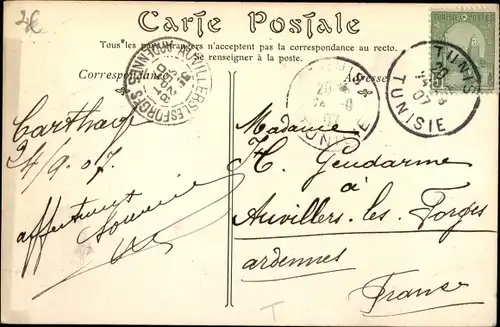 Carte Postale
Tous les pays étrangers n'acceptent pas la correspondance au recto.
Se renseigner à la poste.
Correspondance
Adresse
TUNIS
20
07
TUNISIE
TUNIS
20
07
TUNISIE
AUVILLERS-LES-FORGES
ARDENNES
Carthage
24/9.07.
affectueux
souvenir
Madame
H. Gendarme
à
Auvillers-les-Forges
ardennes
France
T